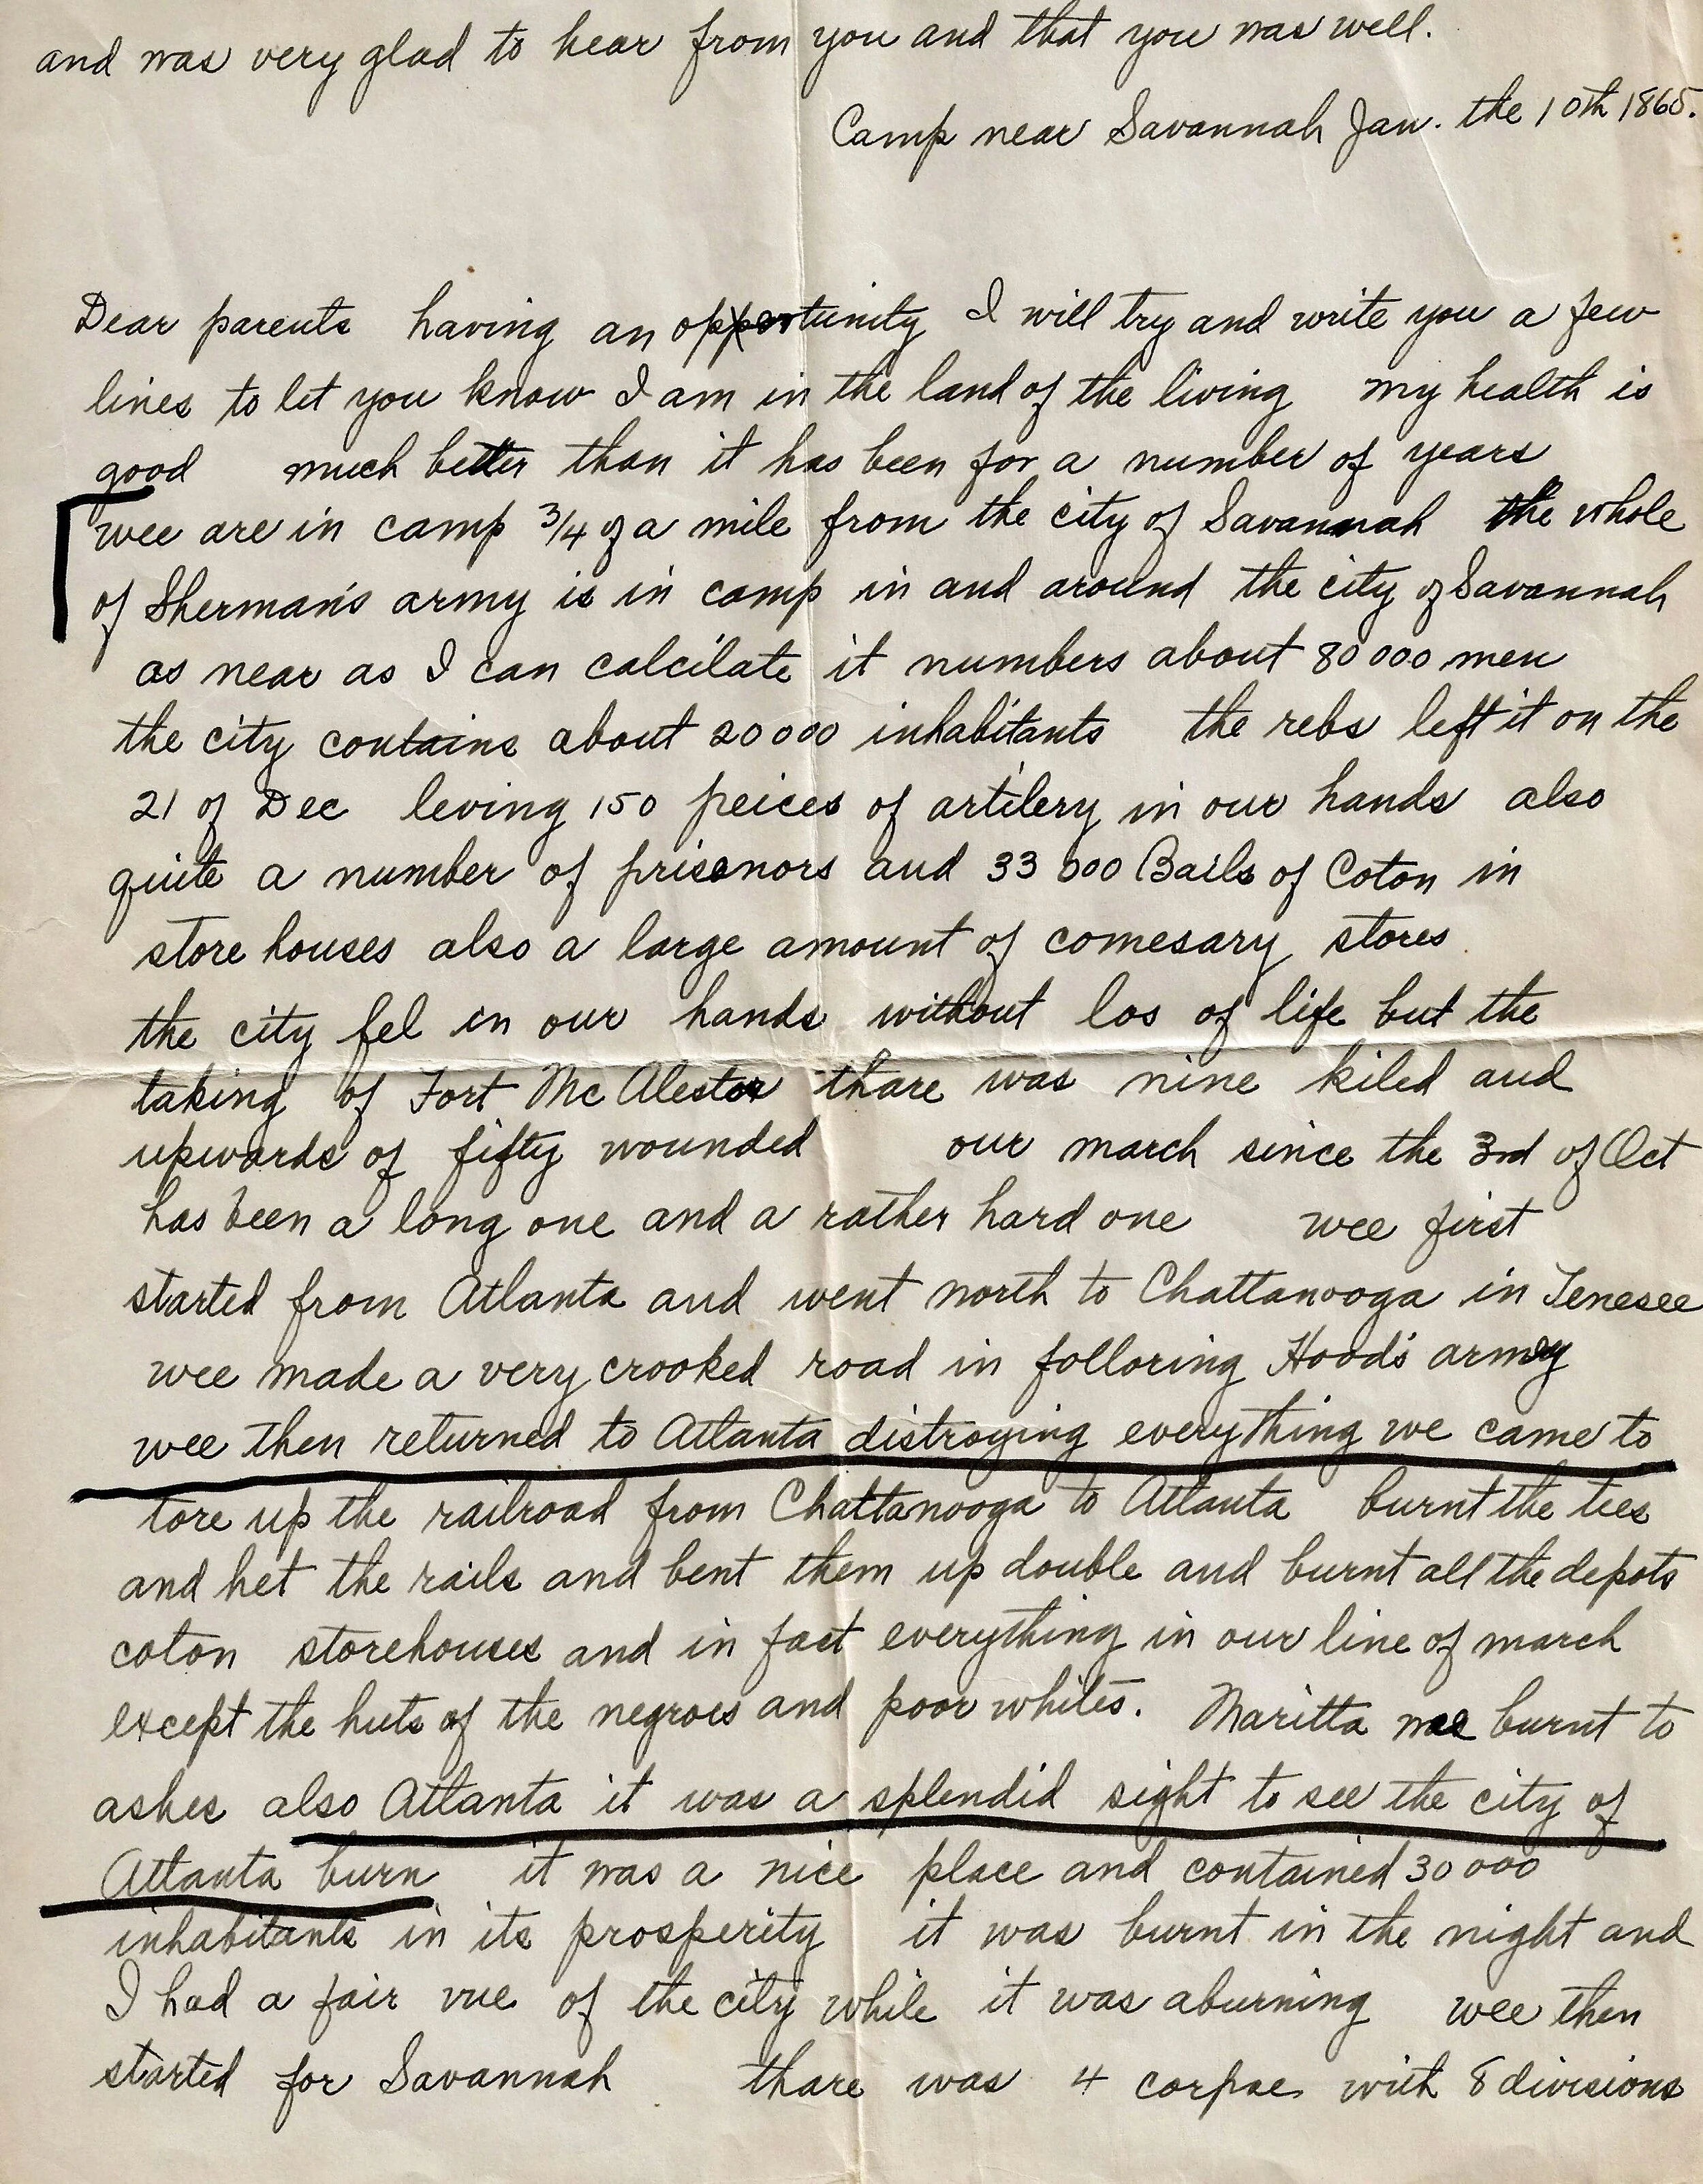 and was very glad to hear from you and that you was well.
Camp near Savannah Jan. the 10th 1865.
Dear parents having an opportunity I will try and write you a few
lines to let you know I am in the land of the living my health is
good much better than it has been for a number of years
wee are in camp 3/4 of a mile from the city of Savannah the whole
of Sherman's army is in camp in and around the city of Savannah
as near as I can calcilate it numbers about 80000 men
the city contains about 20000 inhabitants the rebs left it on the
21 of Dec leving 150 peices of artilery in our hands also
quite a number of prisonors and 33000 Bails of Coton in
store houses also a large amount of comesary stores
the city fel in our hands without los of life but the
taking of Fort Mc Alester thare was nine kiled and
upwards of fifty wounded our march since the 3rd of Oct
has been a long one and a rather hard one wee first
started from Atlanta and went north to Chattanooga in Tenesee
wee made a very crooked road in folloring Hood's army
wee then returned to Atlanta distroying everything we came to
tore up the railroad from Chattanooga to Atlanta burnt the tees
and het the rails and bent them up double and burnt all the depots
coton storehouses and in fact everything in our line of march
except the huts of the negroes and poor whites. Maritta was burnt to
ashes also Atlanta it was a splendid sight to see the city of
Atlanta burn it was a nice place and contained 30000
inhabitants in its prosperity it was burnt in the night and
I had a fair vue of the city while it was aburning wee then
started for Savannah thare was 4 corpse with 8 divisions